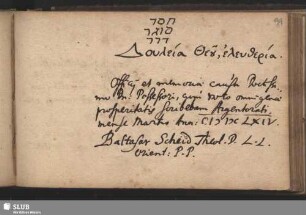 91
חסד
סוגר
דדך
Δουλεία Θεοῦ, ἐλευθερία.
Officij et memoriæ causa Doctiss-
mo Dn. Possessori, cum voto omnigenæ
prosperitatis scribebam Argentorati
mense Martio Ann: CIↃ IↃC LXIV.
Baltasar Scheid Theol. D. L. L.
Orient: P. P.
SLUB